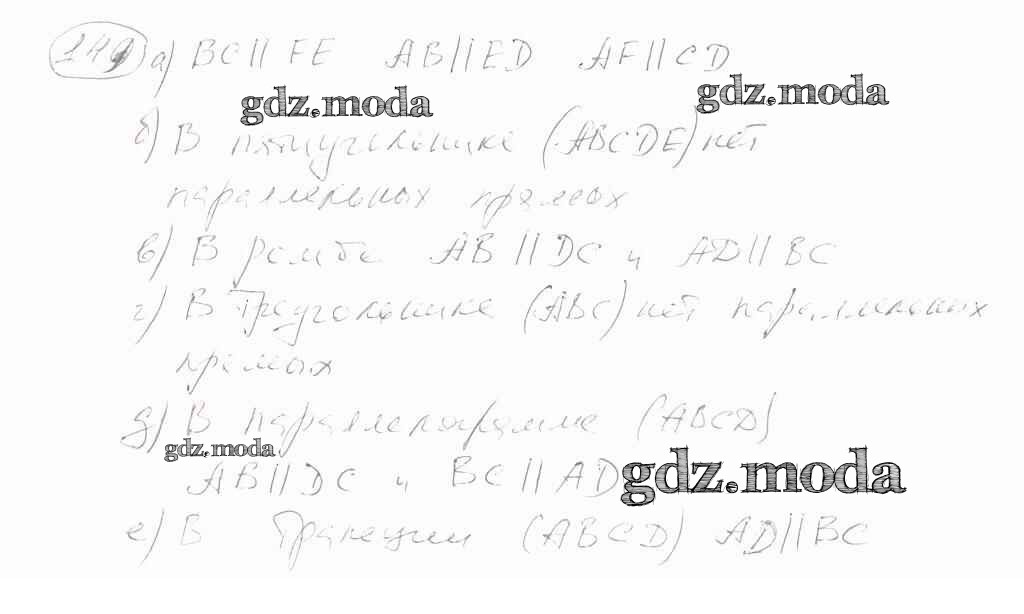 149 а) BC || FE AB || ED AF || CD
gdz.moda gdz.moda
б) В пятиугольнике (ABCDE) нет
параллельных прямых
в) В ромбе AB || DC и AD || BC
г) В треугольнике (ABC) нет параллельных
прямых
д) В параллелограмме (ABCD)
gdz.moda
AB || DC и BC || AD gdz.moda
е) В трапеции (ABCD) AD || BC